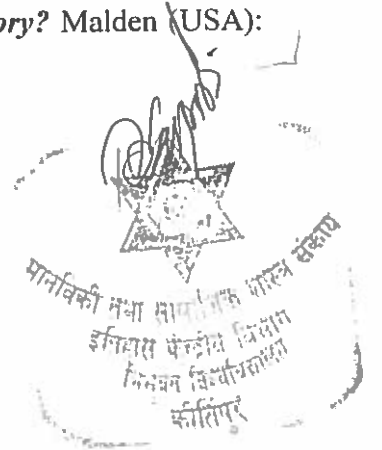 ory? Malden (USA):
मानविकी तथा सामाजिक शास्त्र संकाय
इतिहास केन्द्रीय विभाग
त्रिभुवन विश्वविद्यालय
कीर्तिपुर